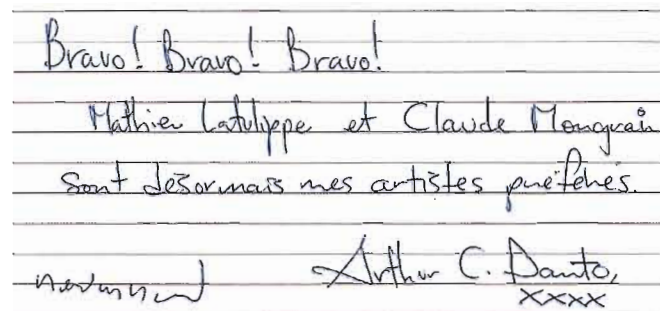 Bravo! Bravo! Bravo!
Mathieu Latulippe et Claude Mongrain
sont désormais mes artistes préférés.
Arthur C. Danto,
xxxx